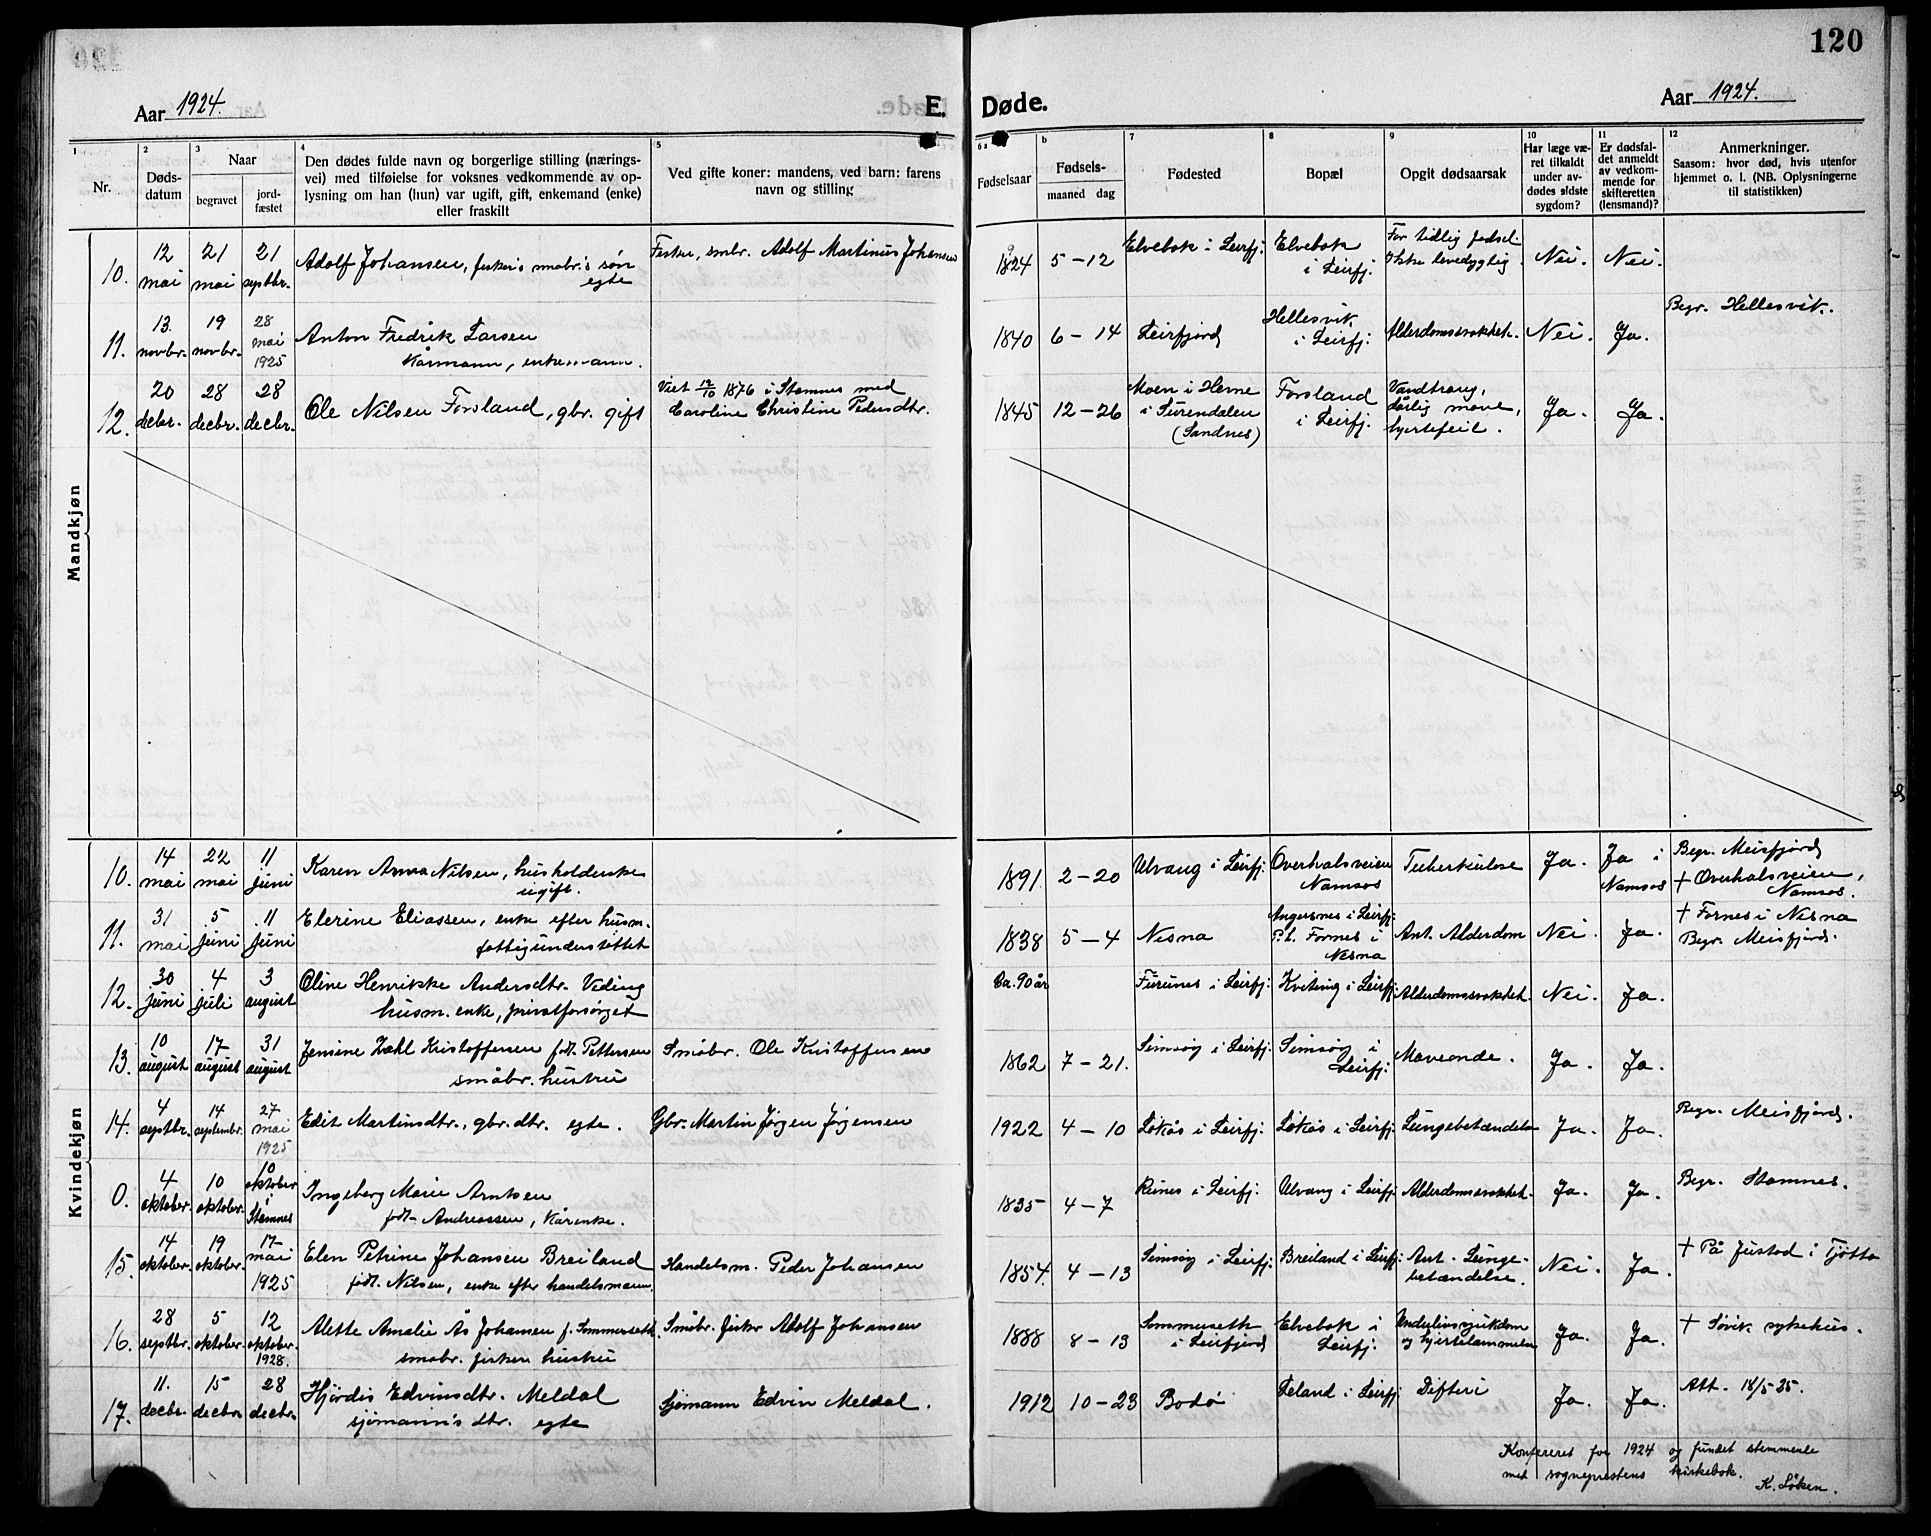 120
Aar 1924.
E. Døde.
Aar 1924.
1
Nr.
2
Døds-
datum
3
Naar
begravet
jord-
fæstet
4
Den dødes fulde navn og borgerlige stilling (nærings-
vei) med tilføielse for voksnes vedkommende av op-
lysning om han (hun) var ugift, gift, enkemand (enke)
eller fraskilt
5
Ved gifte koner: mandens, ved barn: farens
navn og stilling
6 a
Fødselsaar
b
Fødsels-
maaned dag
7
Fødested
8
Bopæl
9
Opgit dødsaarsak
10
Har læge væ-
ret tilkaldt
under av-
dødes sidste
sygdom?
11
Er dødsfal-
det anmeldt
av vedkom-
mende for
skifteretten
(lensmand)?
12
Anmerkninger.
Saasom: hvor død, hvis utenfor
hjemmet o. l. (NB. Oplysningerne
til statistikken)
Mandkjøn
10.
12
mai
21
mai
21
septbr.
Adolf Johansen, fisker's smabr.'s søn
egte
Fisker, smbr. Adolf Martinus Johansen
1824
9
5 – 12
Elvebok i Leirfj.
Elvebok
i Leirfj.
For tidlig fødsel.
Ikke levedygtig.
Nei.
Nei.
11.
13.
novbr.
19
novbr.
28
mai
1925
Anton Fredrik Larsen
Kårmann, enkemann.
1840
6 – 14
Leirfjord
Hellesvik
i Leirfj.
Alderdomssvakhet.
Nei.
Ja.
Begr. Hellesvik.
12.
20
decbr.
28
decbr.
28
decbr.
Ole Nilsen Forsland, gbr. gift
Viet 12/10 1876 i Stamnes med
Caroline Christine Pedersdtr.
1845
12 – 26
Moen i Herne
i Surendalen
(Sandnes)
Forsland
i Leirfj.
Vandtrang,
dårlig mave,
hjertefeil.
Ja.
Ja.
Kvindekjøn
10.
14
mai
22
mai
11
juni
Karen Anna Nilsen, husholderske
ugift.
1891
2 – 20
Ulvang i Leirfj.
Overhalsveien
Namsos
Tuberkulose
Ja.
Ja i
Namsos
Begr. Meisfjord
+ Overhalsveien,
Namsos.
11.
31
mai
5
juni
11
juni
Elerine Eliassen, enke efter husm.
fattigunderstøttet
1838
5 – 4
Nesna
Angersnes i Leirfj.
P.t. Fornes i
Nesna
Ant. Alderdom
Nei.
Ja.
+ Fornes i Nesna
Begr. Meisfjord.
12.
30
juni
4
juli
3
august
Oline Henrikke Andersdtr. Veding
husm. enke, privatforsørget
Ca. 90 år
Furunes i Leirfj.
Kviting i Leirfj.
Alderdomssvakhet.
Nei.
Ja.
13.
10
august
17
august
31
august
Jensine Zahl Kristoffersen født Pettersen
småbr. hustru
Småbr. Ole Kristoffersen
1862
7 – 21.
Simsøy i Leirfj.
Simsøy i
Leirfj.
Maveonde.
Ja.
Ja.
14.
4
septbr.
14
septembr.
27
mai
1925
Edit Martinsdtr., gbr. dtr. egte.
Gbr. Martin Jørgen Jørgensen
1922
4 – 10
Løkås i Leirfj.
Løkås i Leirfj.
Lungebetændelse
Ja.
Ja.
Begr. Meisfjord.
0.
4
oktober.
10
oktober.
10
oktober
i
Stamnes
Ingeborg Marie Arntsen
født Andreassen, Kårenke.
1835
4 – 7
Reines i Leirfj.
Ulvang i Leirfj.
Alderdomssvakhet.
Ja.
Ja.
Begr. Stamnes.
15.
14
oktober.
19
oktober.
17
mai
1925
Elen Petrine Johansen Breiland
født. Nilsen, enke efter handelsmann.
Handelsm. Peder Johansen
1854.
4 – 13
Simsøy i Leirfj.
Breiland i Leirfj.
Ant. Lunge-
betændelse.
Nei.
Ja.
+ På Justad i Tjøtta
16.
28
septbr.
5
oktober.
12
oktober.
1928.
Alette Amalie Ås Johansen f. Sommerseth
smabr. fiskers hustru
Småbr. fisker Adolf Johansen
1888
8 – 13
Sommerseth
i Leirfjord
Elvebok i
Leirfj.
Underlivssjukdom
og hjertelammelse
Ja.
Ja.
+ Søvik sykehus.
17.
11.
decbr.
15
decbr.
28
decbr.
Hjørdis Edvinsdtr. Meldal
sjømann's dtr. egte
Sjømann Edvin Meldal.
1912
10 – 23
Bodø
Leland i Leirfj.
Difteri
Ja.
Ja.
Att. 18/5-25.
Konfereret for 1924 og fundet stemmende
med sogneprestens kirkebok.
K. Løken.